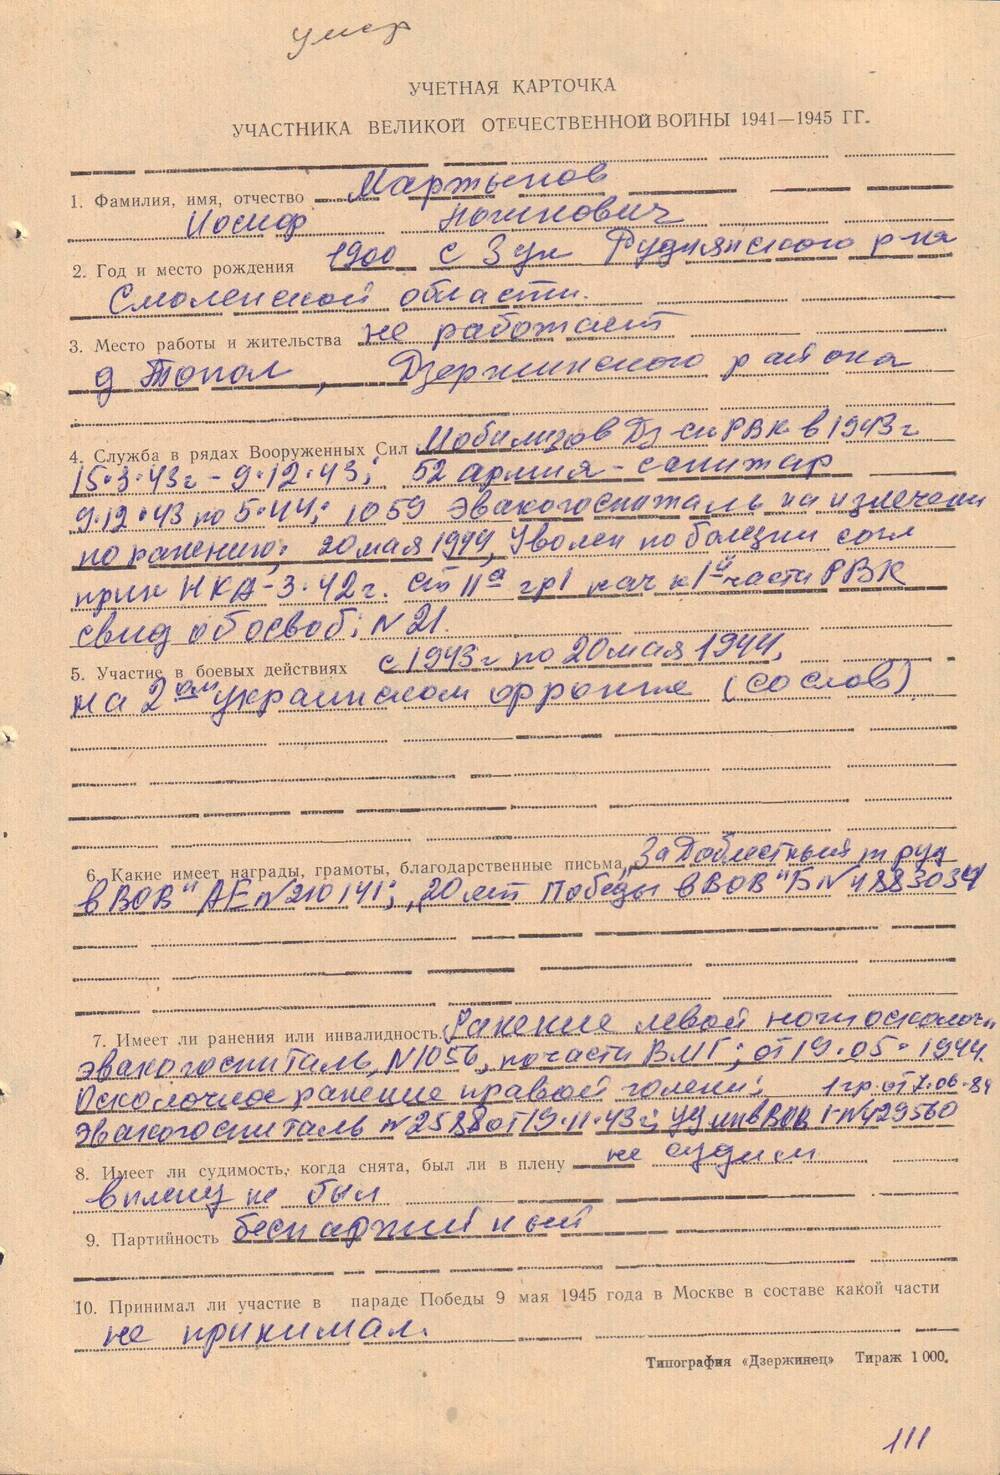 умер
УЧЕТНАЯ КАРТОЧКА
УЧАСТНИКА ВЕЛИКОЙ ОТЕЧЕСТВЕННОЙ ВОЙНЫ 1941—1945 ГГ.
1. Фамилия, имя, отчество Мартынов
Иосиф
2. Год и место рождения 1900 с Зун Руднянского р-на
Смоленской области.
3. Место работы и жительства не работает
д Топол, Дзержинского района
4. Служба в рядах Вооруженных Сил Мобилизов Дз-ск РВК в 1943 г
15.3.43г - 9.12.43; 52 армия - санитар
9.12.43 по 5.44; 1059 Эвакогоспиталь на излечени
по ранению; 20 мая 1944, Уволен по болезни согл
прик НКА-3.42г. ст 11а гр 1 нач к 1й части РВК
свид об освоб; N 21.
5. Участие в боевых действиях с 1943г по 20 мая 1944,
на 2ом украинском фронте (со слов)
6. Какие имеет награды, грамоты, благодарственные письма „За Доблестный труд
в ВОВ" АЕ N 210141; „20 лет Победы в ВОВ" Б N 4883034
7. Имеет ли ранения или инвалидность Ранение левой ноги осколочн
эвакогоспиталь, N 1056, по части ВМГ; от 19.05.1944.
Осколочное ранение правой голени; 1 гр. от 7.06.84
Эвакогоспиталь N 2588 от 19.11.43г; уд инв ВОВ Г-N 429560
8. Имеет ли судимость, когда снята, был ли в плену не судим
в плену не был
9. Партийность беспартийный
10. Принимал ли участие в параде Победы 9 мая 1945 года в Москве в составе какой части
не принимал.
Типография «Дзержинец» Тираж 1 000.
111